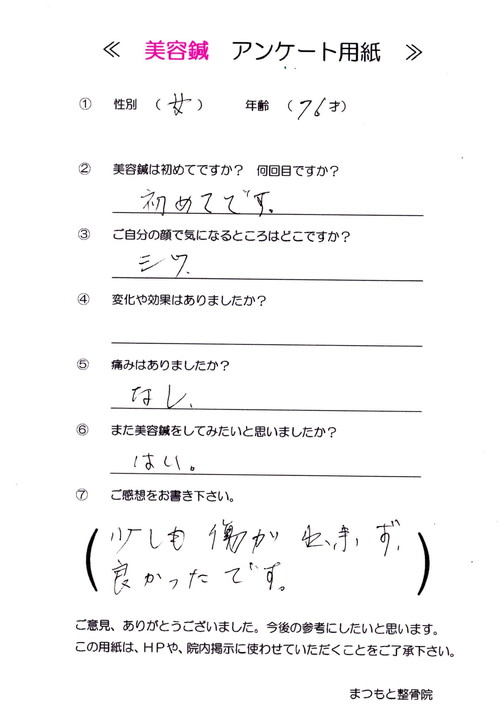 ≪ 美容鍼 アンケート用紙 ≫
① 性別 （ 女 ） 年齢 （ 76 才）
② 美容鍼は初めてですか？ 何回目ですか？
初めてです。
③ ご自分の顔で気になるところはどこですか？
シワ、
④ 変化や効果はありましたか？
⑤ 痛みはありましたか？
なし、
⑥ また美容鍼をしてみたいと思いましたか？
はい。
⑦ ご感想をお書き下さい。
少しも傷が 出来ず、
良かったです。
ご意見、ありがとうございました。今後の参考にしたいと思います。
この用紙は、ＨＰや、院内掲示に使わせていただくことをご了承下さい。
まつもと整骨院